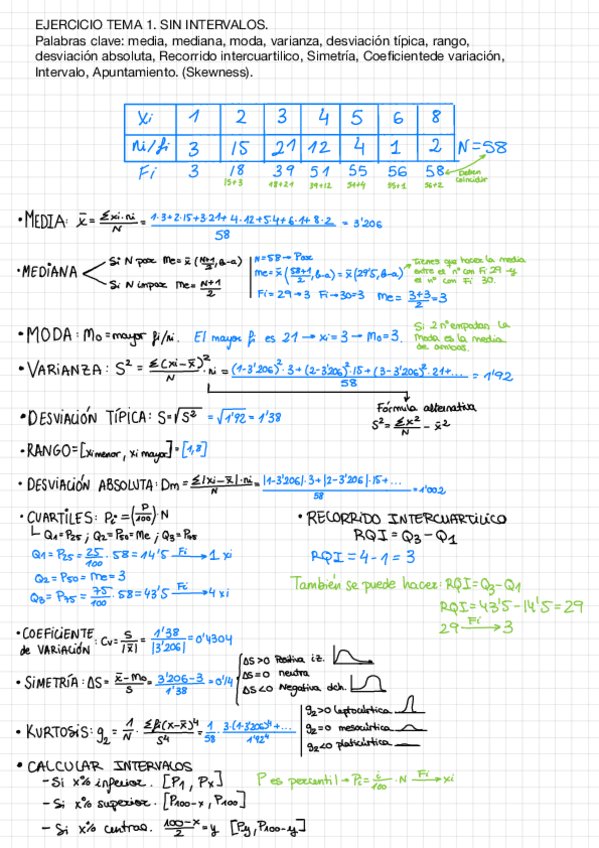 EJERCICIO TEMA 1. SIN INTERVALOS.
Palabras clave: media, mediana, moda, varianza, desviación típica, rango,
desviación absoluta, Recorrido intercuartilico, Simetría, Coeficientede variación,
Intervalo, Apuntamiento. (Skewness).
Xi 1 2 3 4 5 6 8
ni/fi 3 15 21 12 4 1 2 N=58
Fi 3 18 39 51 55 56 58
15+3 18+21 39+12 51+4 55+1 56+2 Deben coincidir
• MEDIA: x̄ = Σxi·ni/N = 1·3+2·15+3·21+4·12+5·4+6·1+8·2/58 = 3'206
• MEDIANA
Si N par Me = x̄(N+1/2, b-a)
Si N impar Me = N+1/2
N=58 → Par
Me = x̄(58+1/2, b-a) = x̄(29'5, b-a)
Fi=29→3 Fi→30=3 Me = 3+3/2 = 3
Tienes que hacer la media
entre el nº con Fi 29 y
el nº con Fi 30.
• MODA: Mo = mayor fi/ni. El mayor fi es 21 → xi=3 → Mo=3.
Si 2 nº empatan la
moda es la media
de ambos.
• VARIANZA: S² = Σ(xi-x̄)²/N · ni = (1-3'206)²·3+(2-3'206)²·15+(3-3'206)²·21+.../58 = 1'92
Fórmula alternativa
S² = Σx²/N - x̄²
• DESVIACIÓN TÍPICA: S=√S² = √1'92 = 1'38
• RANGO=[xi menor, xi mayor]=[1,8]
• DESVIACIÓN ABSOLUTA: Dm = Σ|xi-x̄|·ni/N = |1-3'206|·3+|2-3'206|·15+.../58 = 1'002
• CUARTILES: Pc = (P/100)·N
Q1=P25; Q2=P50=Me; Q3=P75
Q1=P25 = 25/100 · 58 = 14'5 Fi→ 1 xi
Q2=P50=Me=3
Q3=P75 = 75/100 · 58 = 43'5 Fi→ 4 xi
• RECORRIDO INTERCUARTILICO
RQI = Q3-Q1
RQI = 4-1 = 3
También se puede hacer: RQI=Q3-Q1
RQI=43'5-14'5=29
29 Fi→ 3
• COEFICIENTE
de VARIACIÓN: Cv = S/|x̄| = 1'38/|3'206| = 0'4304
• SIMETRÍA: ΔS = x̄-Mo/S = 3'206-3/1'38 = 0'14
ΔS>0 Positiva iz.
ΔS=0 neutra
ΔS<0 Negativa dch.
• KURTOSIS: g₂ = 1/N · Σfi(x-x̄)⁴/S⁴ = 1/58 · 3·(1-3'206)⁴+.../1'92⁴
g₂>0 leptocúrtica
g₂=0 mesocúrtica
g₂<0 platicúrtica
• CALCULAR INTERVALOS
- Si x% inferior. [P1, Px]
- Si x% superior. [P100-x, P100]
- Si x% central. 100-x/2 = y [Py, P100-y]
P es percentil → Pc = c/100 · N Fi→ xi